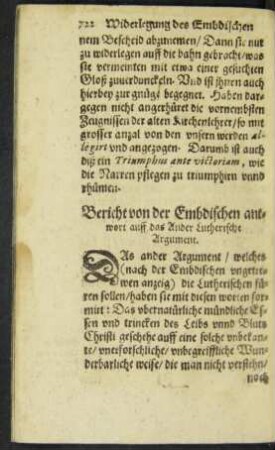 722 Widerlegung des Embdischen
nem Bescheid abzunemen / Dann sie nur
zu widerlegen auff die bahn gebracht / was
sie vermeinten mit etwa einer gesuchten
Gloß zuuerdunckeln. Vnd ist jhnen auch
hierbey zur gnüge begegnet. Haben dar-
gegen nicht angerhüret die vornembsten
Zeugnissen der alten Kirchenlehrer / so mit
grosser anzal von den vnsern werden al-
legirt vnd angezogen. Darumb ist auch
diß ein Triumphus ante victoriam, wie
die Narren pflegen zu triumphirn vnnd
rhümen.
Bericht von der Embdischen ant-
wort auff das Ander Lutherische
Argument.
DAs ander Argument / welches
(nach der Embdischen
wen anzeig) die Lutherischen fü-
ren sollen / haben sie mit diesen worten for-
mirt: Das vbernatürliche mündliche Es-
sen vnd trincken des Leibs vnnd Bluts
Christi geschehe auff eine solche vnbekan-
te / vnerforschliche / vnbegreiffliche Wun-
derbarliche weise / die man nicht verstehn /
noch